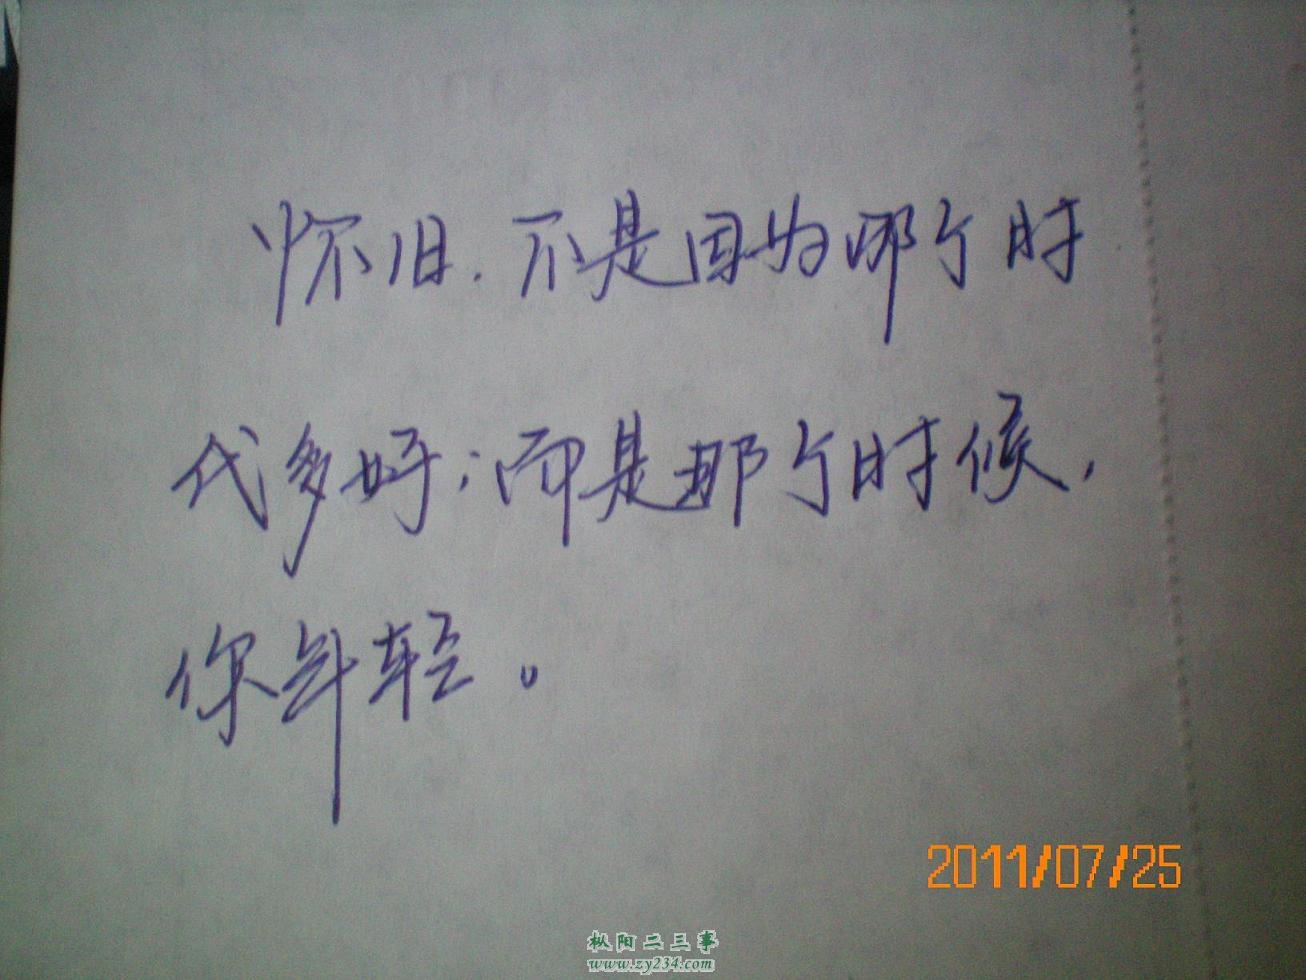 怀旧.不是因为哪个时
代多好;而是那个时候,
你年轻。
2011/07/25
枞阳二三事
www.zy234.com